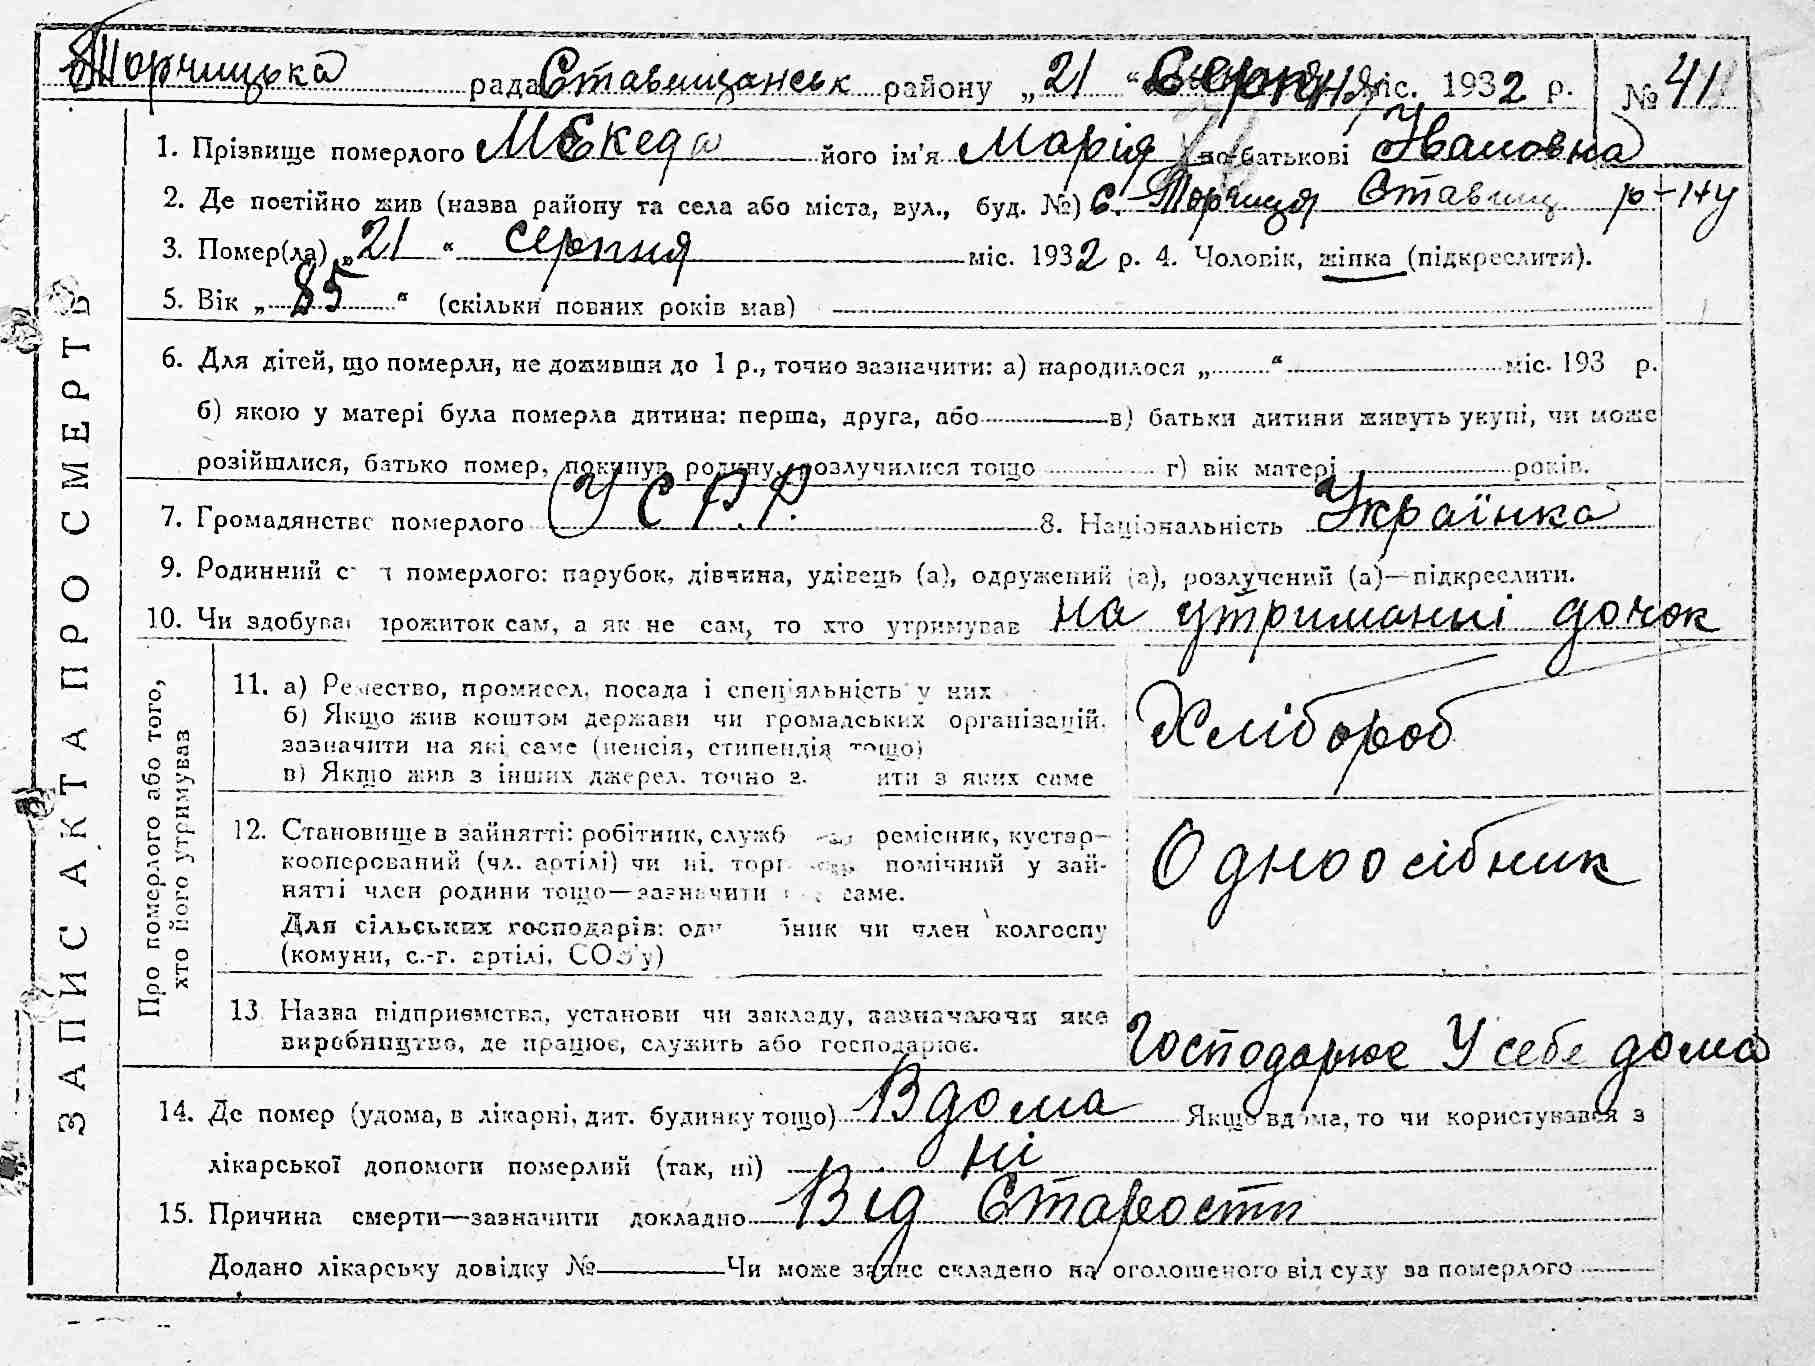 Торчицька рада Ставищанськ району „21“ Серпня міс. 1932 р. № 41
1. Прізвище померлого Мекеда його ім'я Марія по батькові Івановна
2. Де постійно жив (назва району та села або міста, вул., буд. №) С. Торчиця Ставищ р-ну
3. Помер(ла) „21“ серпня міс. 1932 р. 4. Чоловік, жінка (підкреслити).
5. Вік „85“ (скільки повних років мав)
6. Для дітей, що померли, не доживши до 1 р., точно зазначити: а) народилося „ “ міс. 193 р.
б) якою у матері була померла дитина: перша, друга, або в) батьки дитини живуть укупі, чи може
розійшлися, батько помер, покинув родину, розлучилися тощо г) вік матері років.
7. Громадянство померлого У С Р.Р. 8. Національність Українка
9. Родинний с н померлого: парубок, дівчина, удівець (а), одружений (а), розлучений (а)—підкреслити.
10. Чи здобував прожиток сам, а як не сам, то хто утримував на утриманні дочок
ЗАПИС АКТА ПРО СМЕРТЬ
Про померлого або того,
хто його утримував
11. а) Ремество, промисел, посада і спеціяльність у них
б) Якщо жив коштом держави чи громадських організацій,
зазначити на які саме (пенсія, стипендія тощо)
в) Якщо жив з інших джерел, точно з ити з яких саме
Хлібороб
12. Становище в зайнятті: робітник, служб ремісник, кустар—
кооперований (чл. артілі) чи ні, торг помічний у зай-
нятті член родини тощо—зазначити саме.
Для сільських господарів: од бник чи член колгоспу
(комуни, с.-г. артілі, СОЗ'у)
Одноосібник
13. Назва підприємства, установи чи закладу, зазначаючи яке
виробництво, де працює, служить або господарює.
Господарює У себе дома
14. Де помер (удома, в лікарні, дит. будинку тощо) Вдома Якщо вдома, то чи користувався з
лікарської допомоги померлий (так, ні) ні
15. Причина смерти—зазначити докладно Від Старости
Додано лікарську довідку № Чи може запис складено на оголошеного від суду за померлого